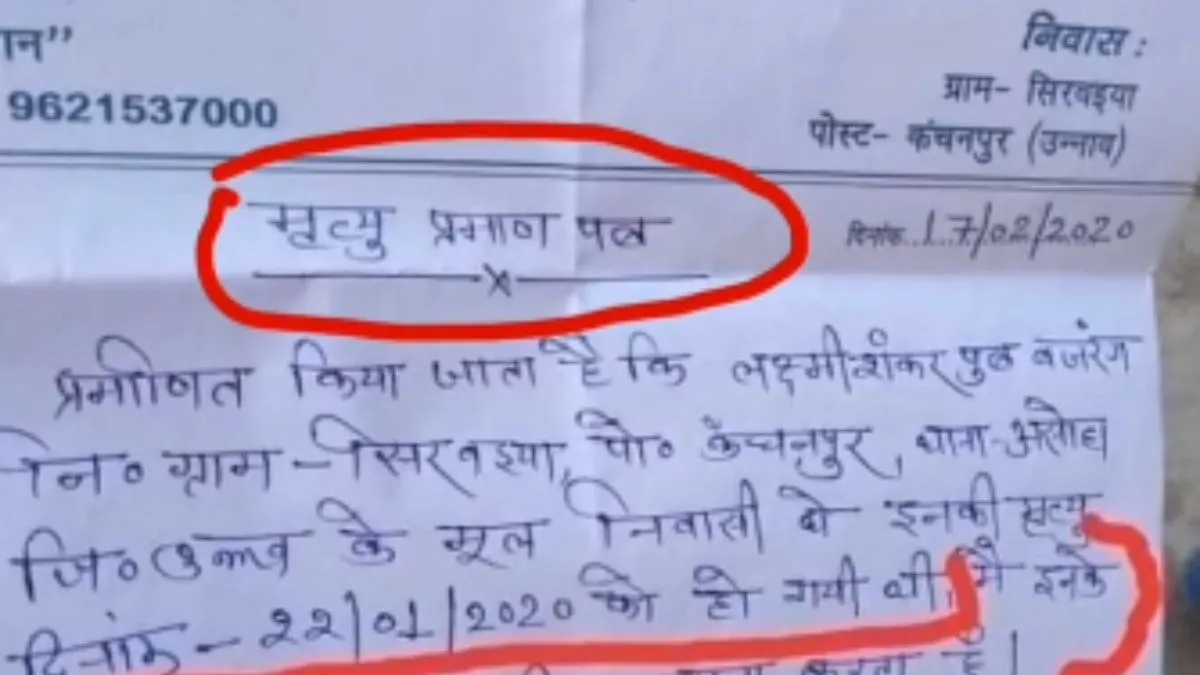 ान”
9621537000
निवास :
ग्राम- सिरवइया
पोस्ट- कंचनपुर (उन्नाव)
मृत्यु प्रमाण पत्र
दिनांक..17/02/2020
प्रमाणित किया जाता है कि लक्ष्मीशंकर पुत्र बजरंग
नि० ग्राम - सिरवइया, पो० कंचनपुर, थाना-असोहा
जि० उन्नाव के मूल निवासी थे इनकी मृत्यु
दिनांक - 22/01/2020 को हो गयी थी, मै इनके
करता हूँ।